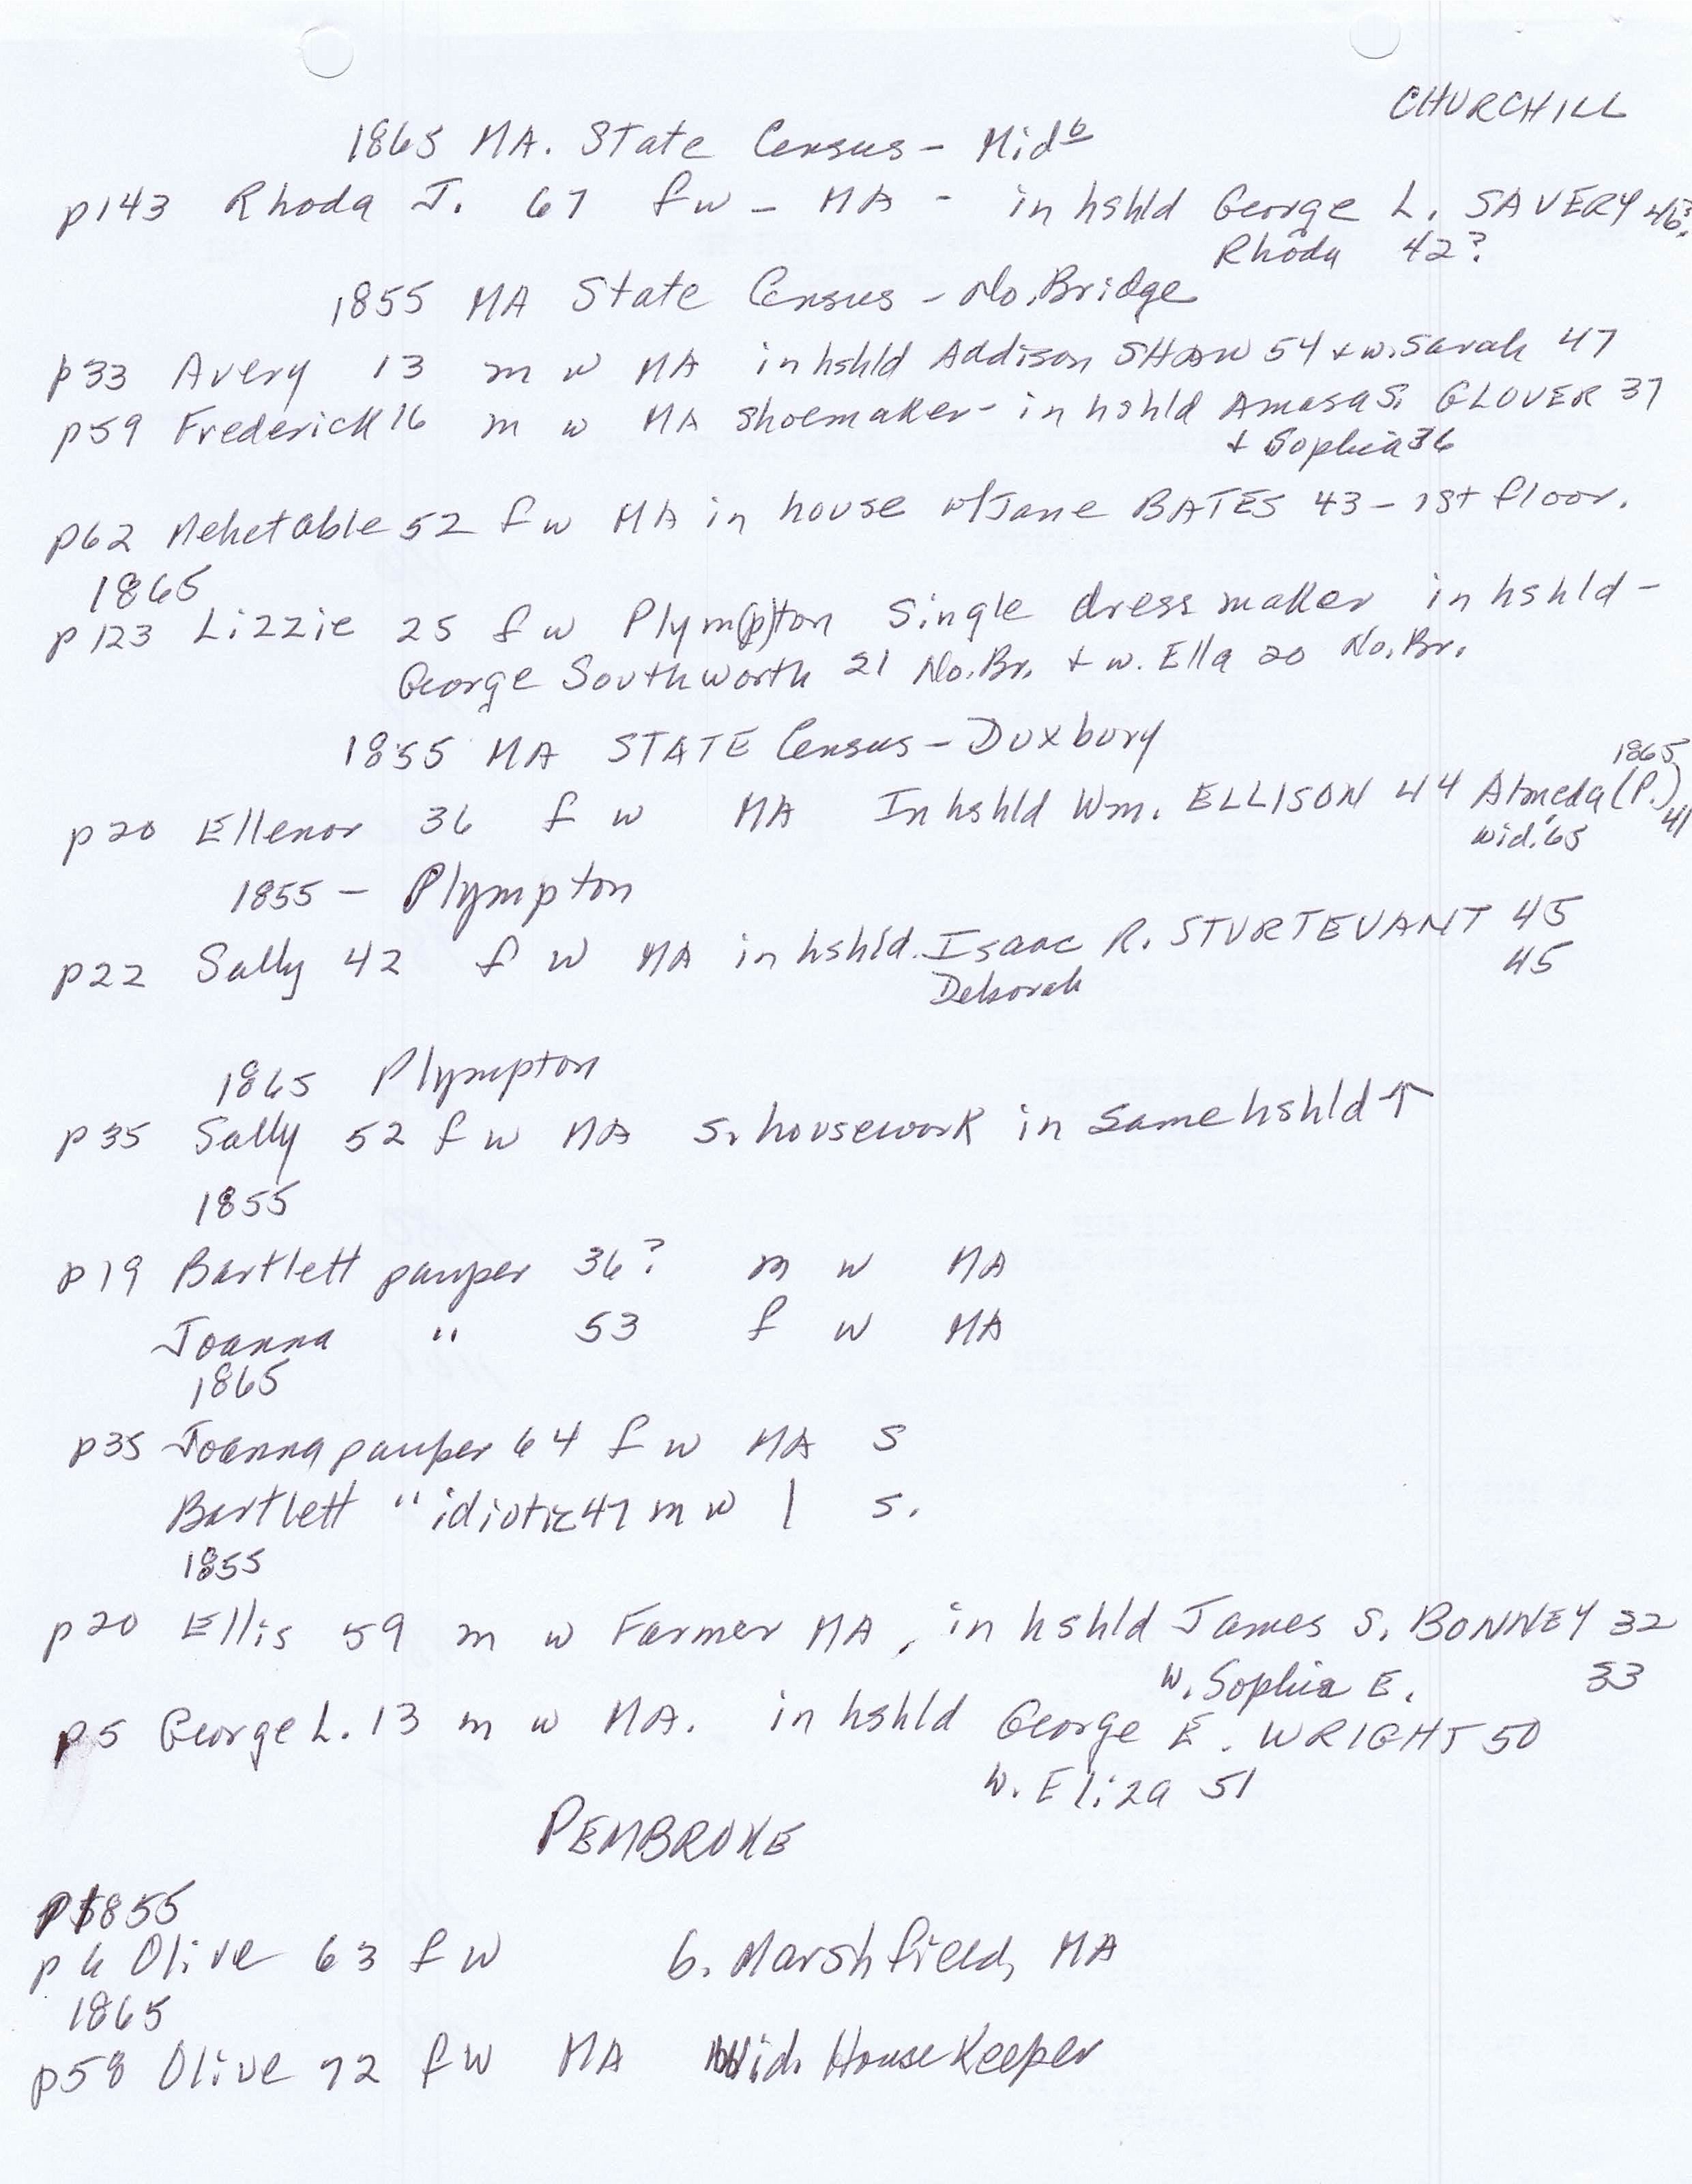 CHURCHILL
1865 MA. State Census - Midb
p143 Rhoda J. 67 f w - MA - in hshld George L. SAVERY 46?
Rhoda 42?
1855 MA State Census - No. Bridge
p33 Avery 13 m w MA in hshld Addison SHAW 54 + w. Sarah 47
p59 Frederick 16 m w MA shoemaker - in hshld Amasa S. GLOVER 37
+ Sophia 36
p62 Mehetable 52 f w MA in house w/Jane BATES 43 - 1st floor.
1865
p123 Lizzie 25 f w Plym(p)ton Single dress maker in hshld -
George Southworth 21 No. Br. + w. Ella 20 No. Br.
1855 MA STATE Census - Duxbury
1865
p20 Ellenor 36 f w MA In hshld Wm. ELLISON 44 Almeda (P.) 41
wid. 65
1855 - Plympton
p22 Sally 42 f w MA in hshld. Isaac R. STURTEVANT 45
Deborah 45
1865 Plympton
p35 Sally 52 f w MA S. housework in same hshld ↑
1855
p19 Bartlett pauper 36? m w MA
Joanna " 53 f w MA
1865
p35 Joanna pauper 64 f w MA S
Bartlett " idiotic 47 m w | S.
1855
p20 Ellis 59 m w Farmer MA, in hshld James S. BONNEY 32
w. Sophia E. 33
p5 George L. 13 m w MA. in hshld George E. WRIGHT 50
w. Eliza 51
PEMBROKE
1855
p6 Olive 63 f w b. Marshfield, MA
1865
p58 Olive 72 f w MA Wid. House Keeper